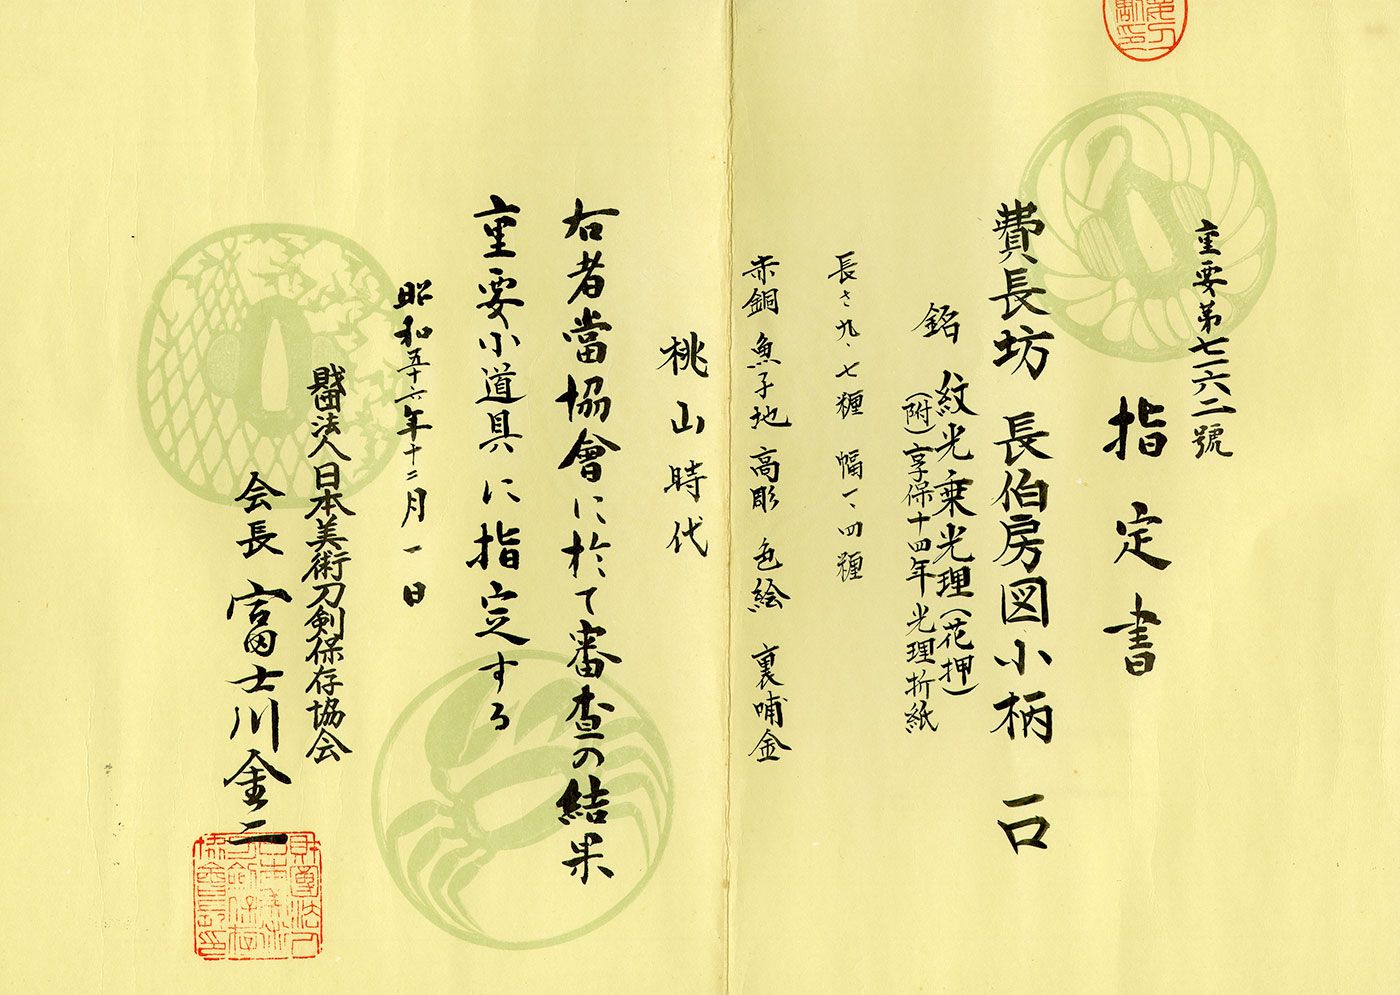 重要第七六二號
指定書
費長坊 長伯房図小柄 一口
銘 紋光乗光理(花押)
(附)享保十四年光理折紙
長さ九、七糎 幅一、四糎
赤銅魚子地高彫色絵裏哺金
桃山時代
右者當協會に於て審査の結果
重要小道具に指定する
昭和五十六年十二月一日
財団法人日本美術刀剣保存協会
会長 富士川金二